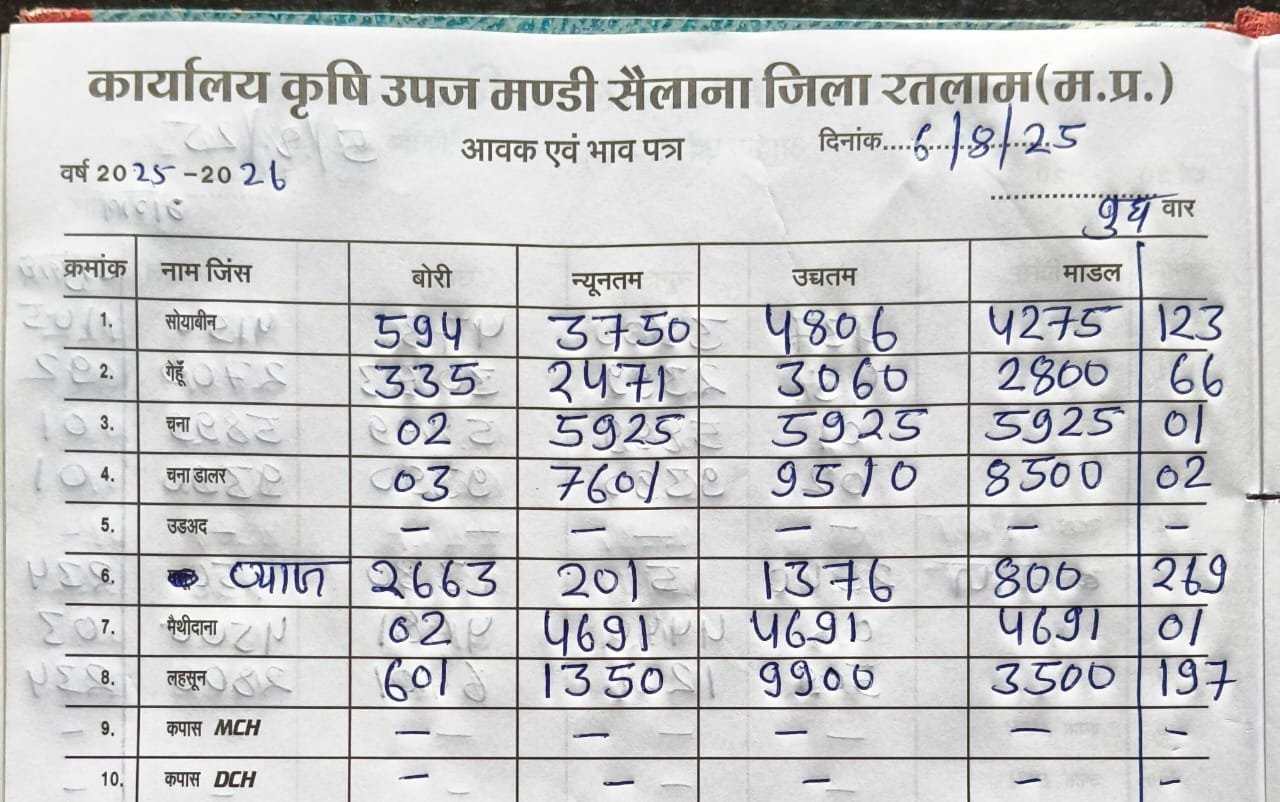 कार्यालय कृषि उपज मण्डी सैलाना जिला रतलाम(म.प्र.)
आवक एवं भाव पत्र
दिनांक....6/8/25
वर्ष 2025-2026
बुध वार
क्रमांक नाम जिंस बोरी न्यूनतम उच्चतम माडल
1. सोयाबीन 594 3750 4806 4275 123
2. गेहूँ 335 2471 3060 2800 66
3. चना 02 5925 5925 5925 01
4. चना डालर 03 7601 9510 8500 02
5. उडअद – – – – –
6. प्याज 2663 201 1376 800 269
7. मैथीदाना 02 4691 4691 4691 01
8. लहसून 601 1350 9900 3500 197
9. कपास MCH – – – – –
10. कपास DCH – – – – –